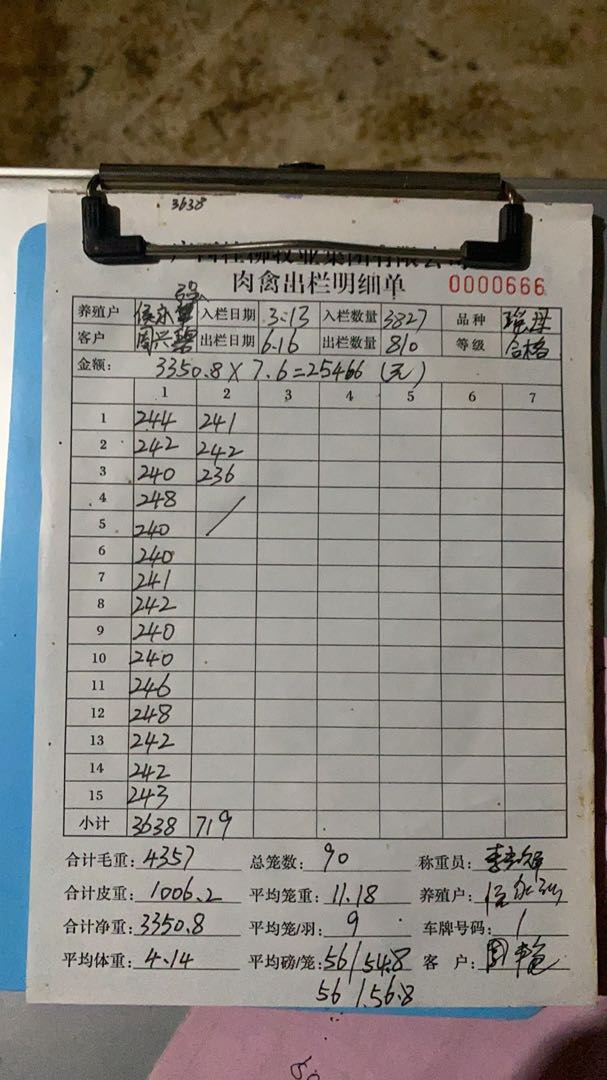 3638
肉禽出栏明细单 0000666
强
养殖户 侯永 入栏日期 3.13 入栏数量 3827 品种 瑶珍
客户 周兴碧 出栏日期 6.16 出栏数量 810 等级 合格
金额: 3350.8×7.6=25466(元)
1 2 3 4 5 6 7
1 244 241
2 242 242
3 240 236
4 248
5 240
6 240
7 241
8 242
9 240
10 240
11 246
12 248
13 242
14 242
15 243
小计 3638 719
合计毛重: 4357 总笼数: 90 称重员:
合计皮重: 1006.2 平均笼重: 11.18 养殖户:
合计净重: 3350.8 平均笼/羽: 9 车牌号码: 1
平均体重: 4.14 平均磅/笼: 56/54.8 客 户: 周
56/56.8